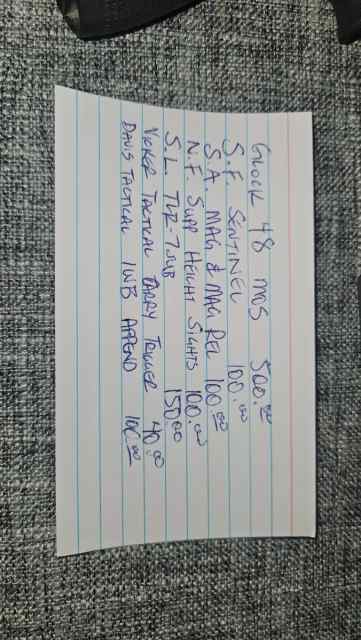 GLOCK 48 MOS 500.00
S.F. SENTINEL 100.00
S.A. MAG & MAG REL 100.00
N.F. SUPP HEIGHT SIGHTS 100.00
S.L. TLR-7 SUB 150.00
VICKER TACTICAL CARRY TRIGGER 40.00
DAVIS TACTICAL IWB APPEND 100.00